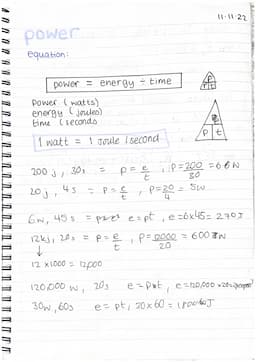 11-11-22
power
equation:
power = energy ÷ time
power (watts)
energy (joules)
time (seconds
1 watt = 1 joule /second
P t
200 j, 30s = p = e/t, p = 200/30 = 6
20 j, 4s = p = e/t, p = 20/4 = 5w
6w, 45s = e = pt, e = 6x45 = 270J
12kj, 20s = p = e/t, p = 12000/20 = 600 w
↓
12 x 1000 = 12,000
120,000 w, 20s e = pxt, e = 120,000 x 20
30w, 60s e = pt,